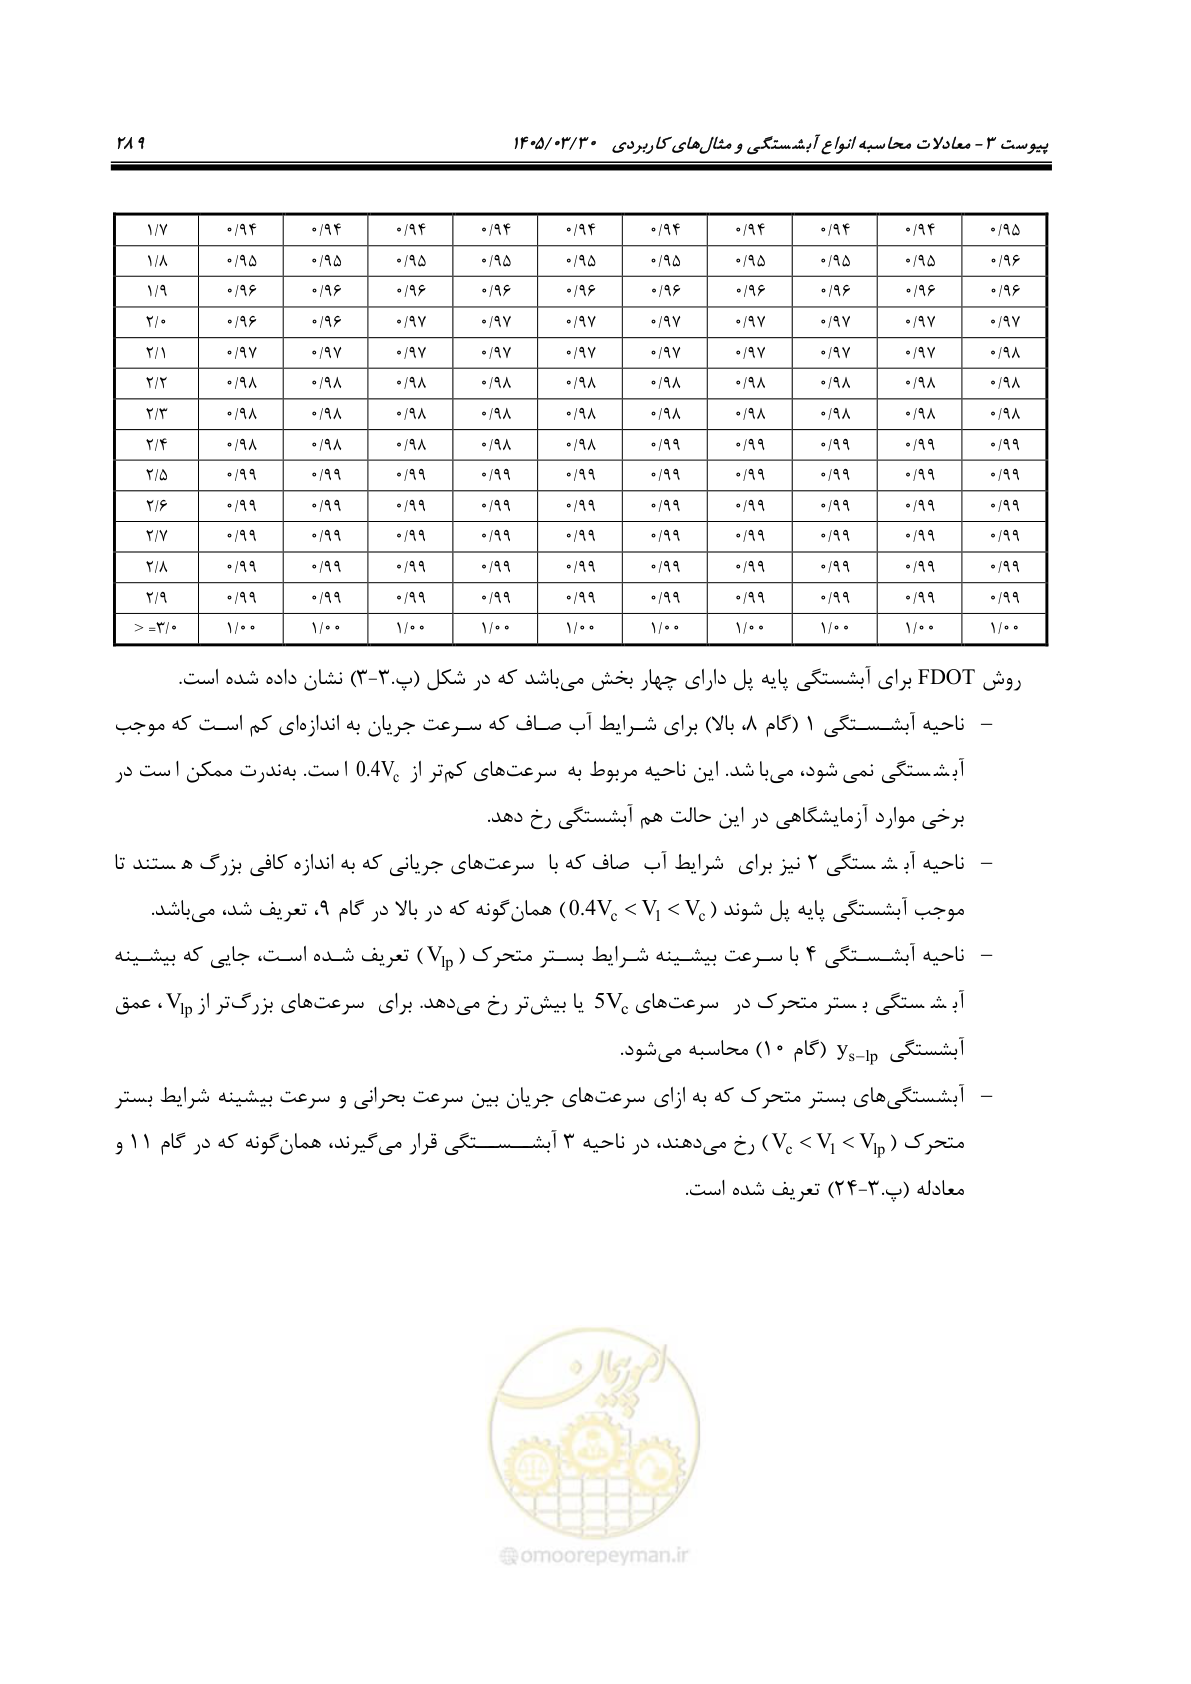 پیوست ۳- معادلات محاسبه انواع آبشستگی و مثال‌های کاربردی ۱۴۰۵/۰۳/۳۰ ۲۸۹
۱/۷ ۰/۹۴ ۰/۹۴ ۰/۹۴ ۰/۹۴ ۰/۹۴ ۰/۹۴ ۰/۹۴ ۰/۹۴ ۰/۹۴ ۰/۹۵
۱/۸ ۰/۹۵ ۰/۹۵ ۰/۹۵ ۰/۹۵ ۰/۹۵ ۰/۹۵ ۰/۹۵ ۰/۹۵ ۰/۹۵ ۰/۹۶
۱/۹ ۰/۹۶ ۰/۹۶ ۰/۹۶ ۰/۹۶ ۰/۹۶ ۰/۹۶ ۰/۹۶ ۰/۹۶ ۰/۹۶ ۰/۹۶
۲/۰ ۰/۹۶ ۰/۹۶ ۰/۹۷ ۰/۹۷ ۰/۹۷ ۰/۹۷ ۰/۹۷ ۰/۹۷ ۰/۹۷ ۰/۹۷
۲/۱ ۰/۹۷ ۰/۹۷ ۰/۹۷ ۰/۹۷ ۰/۹۷ ۰/۹۷ ۰/۹۷ ۰/۹۷ ۰/۹۷ ۰/۹۸
۲/۲ ۰/۹۸ ۰/۹۸ ۰/۹۸ ۰/۹۸ ۰/۹۸ ۰/۹۸ ۰/۹۸ ۰/۹۸ ۰/۹۸ ۰/۹۸
۲/۳ ۰/۹۸ ۰/۹۸ ۰/۹۸ ۰/۹۸ ۰/۹۸ ۰/۹۸ ۰/۹۸ ۰/۹۸ ۰/۹۸ ۰/۹۸
۲/۴ ۰/۹۸ ۰/۹۸ ۰/۹۸ ۰/۹۸ ۰/۹۸ ۰/۹۹ ۰/۹۹ ۰/۹۹ ۰/۹۹ ۰/۹۹
۲/۵ ۰/۹۹ ۰/۹۹ ۰/۹۹ ۰/۹۹ ۰/۹۹ ۰/۹۹ ۰/۹۹ ۰/۹۹ ۰/۹۹ ۰/۹۹
۲/۶ ۰/۹۹ ۰/۹۹ ۰/۹۹ ۰/۹۹ ۰/۹۹ ۰/۹۹ ۰/۹۹ ۰/۹۹ ۰/۹۹ ۰/۹۹
۲/۷ ۰/۹۹ ۰/۹۹ ۰/۹۹ ۰/۹۹ ۰/۹۹ ۰/۹۹ ۰/۹۹ ۰/۹۹ ۰/۹۹ ۰/۹۹
۲/۸ ۰/۹۹ ۰/۹۹ ۰/۹۹ ۰/۹۹ ۰/۹۹ ۰/۹۹ ۰/۹۹ ۰/۹۹ ۰/۹۹ ۰/۹۹
۲/۹ ۰/۹۹ ۰/۹۹ ۰/۹۹ ۰/۹۹ ۰/۹۹ ۰/۹۹ ۰/۹۹ ۰/۹۹ ۰/۹۹ ۰/۹۹
> =۳/۰ < ۱/۰۰ ۱/۰۰ ۱/۰۰ ۱/۰۰ ۱/۰۰ ۱/۰۰ ۱/۰۰ ۱/۰۰ ۱/۰۰ ۱/۰۰
روش FDOT برای آبشستگی پایه پل دارای چهار بخش می‌باشد که در شکل (پ.۳-۳) نشان داده شده است.
– ناحیه آبشستگی ۱ (گام ۸، بالا) برای شرایط آب صاف که سرعت جریان به اندازه‌ای کم است که موجب
آبشستگی نمی شود، می‌باشد. این ناحیه مربوط به سرعت‌های کم‌تر از 0.4Vc است. به‌ندرت ممکن است در
برخی موارد آزمایشگاهی در این حالت هم آبشستگی رخ دهد.
– ناحیه آبشستگی ۲ نیز برای شرایط آب صاف که با سرعت‌های جریانی که به اندازه کافی بزرگ هستند تا
موجب آبشستگی پایه پل شوند (0.4Vc < V1 < Vc) همان‌گونه که در بالا در گام ۹، تعریف شد، می‌باشد.
– ناحیه آبشستگی ۴ با سرعت بیشینه شرایط بستر متحرک (Vlp) تعریف شده است، جایی که بیشینه
آبشستگی بستر متحرک در سرعت‌های 5Vc یا بیش‌تر رخ می‌دهد. برای سرعت‌های بزرگ‌تر از Vlp، عمق
آبشستگی ys-lp (گام ۱۰) محاسبه می‌شود.
– آبشستگی‌های بستر متحرک که به ازای سرعت‌های جریان بین سرعت بحرانی و سرعت بیشینه شرایط بستر
متحرک (Vc < V1 < Vlp) رخ می‌دهند، در ناحیه ۳ آبشستگی قرار می‌گیرند، همان‌گونه که در گام ۱۱ و
معادله (پ.۳-۲۴) تعریف شده است.
امور پیمان
@omoorepeyman.ir